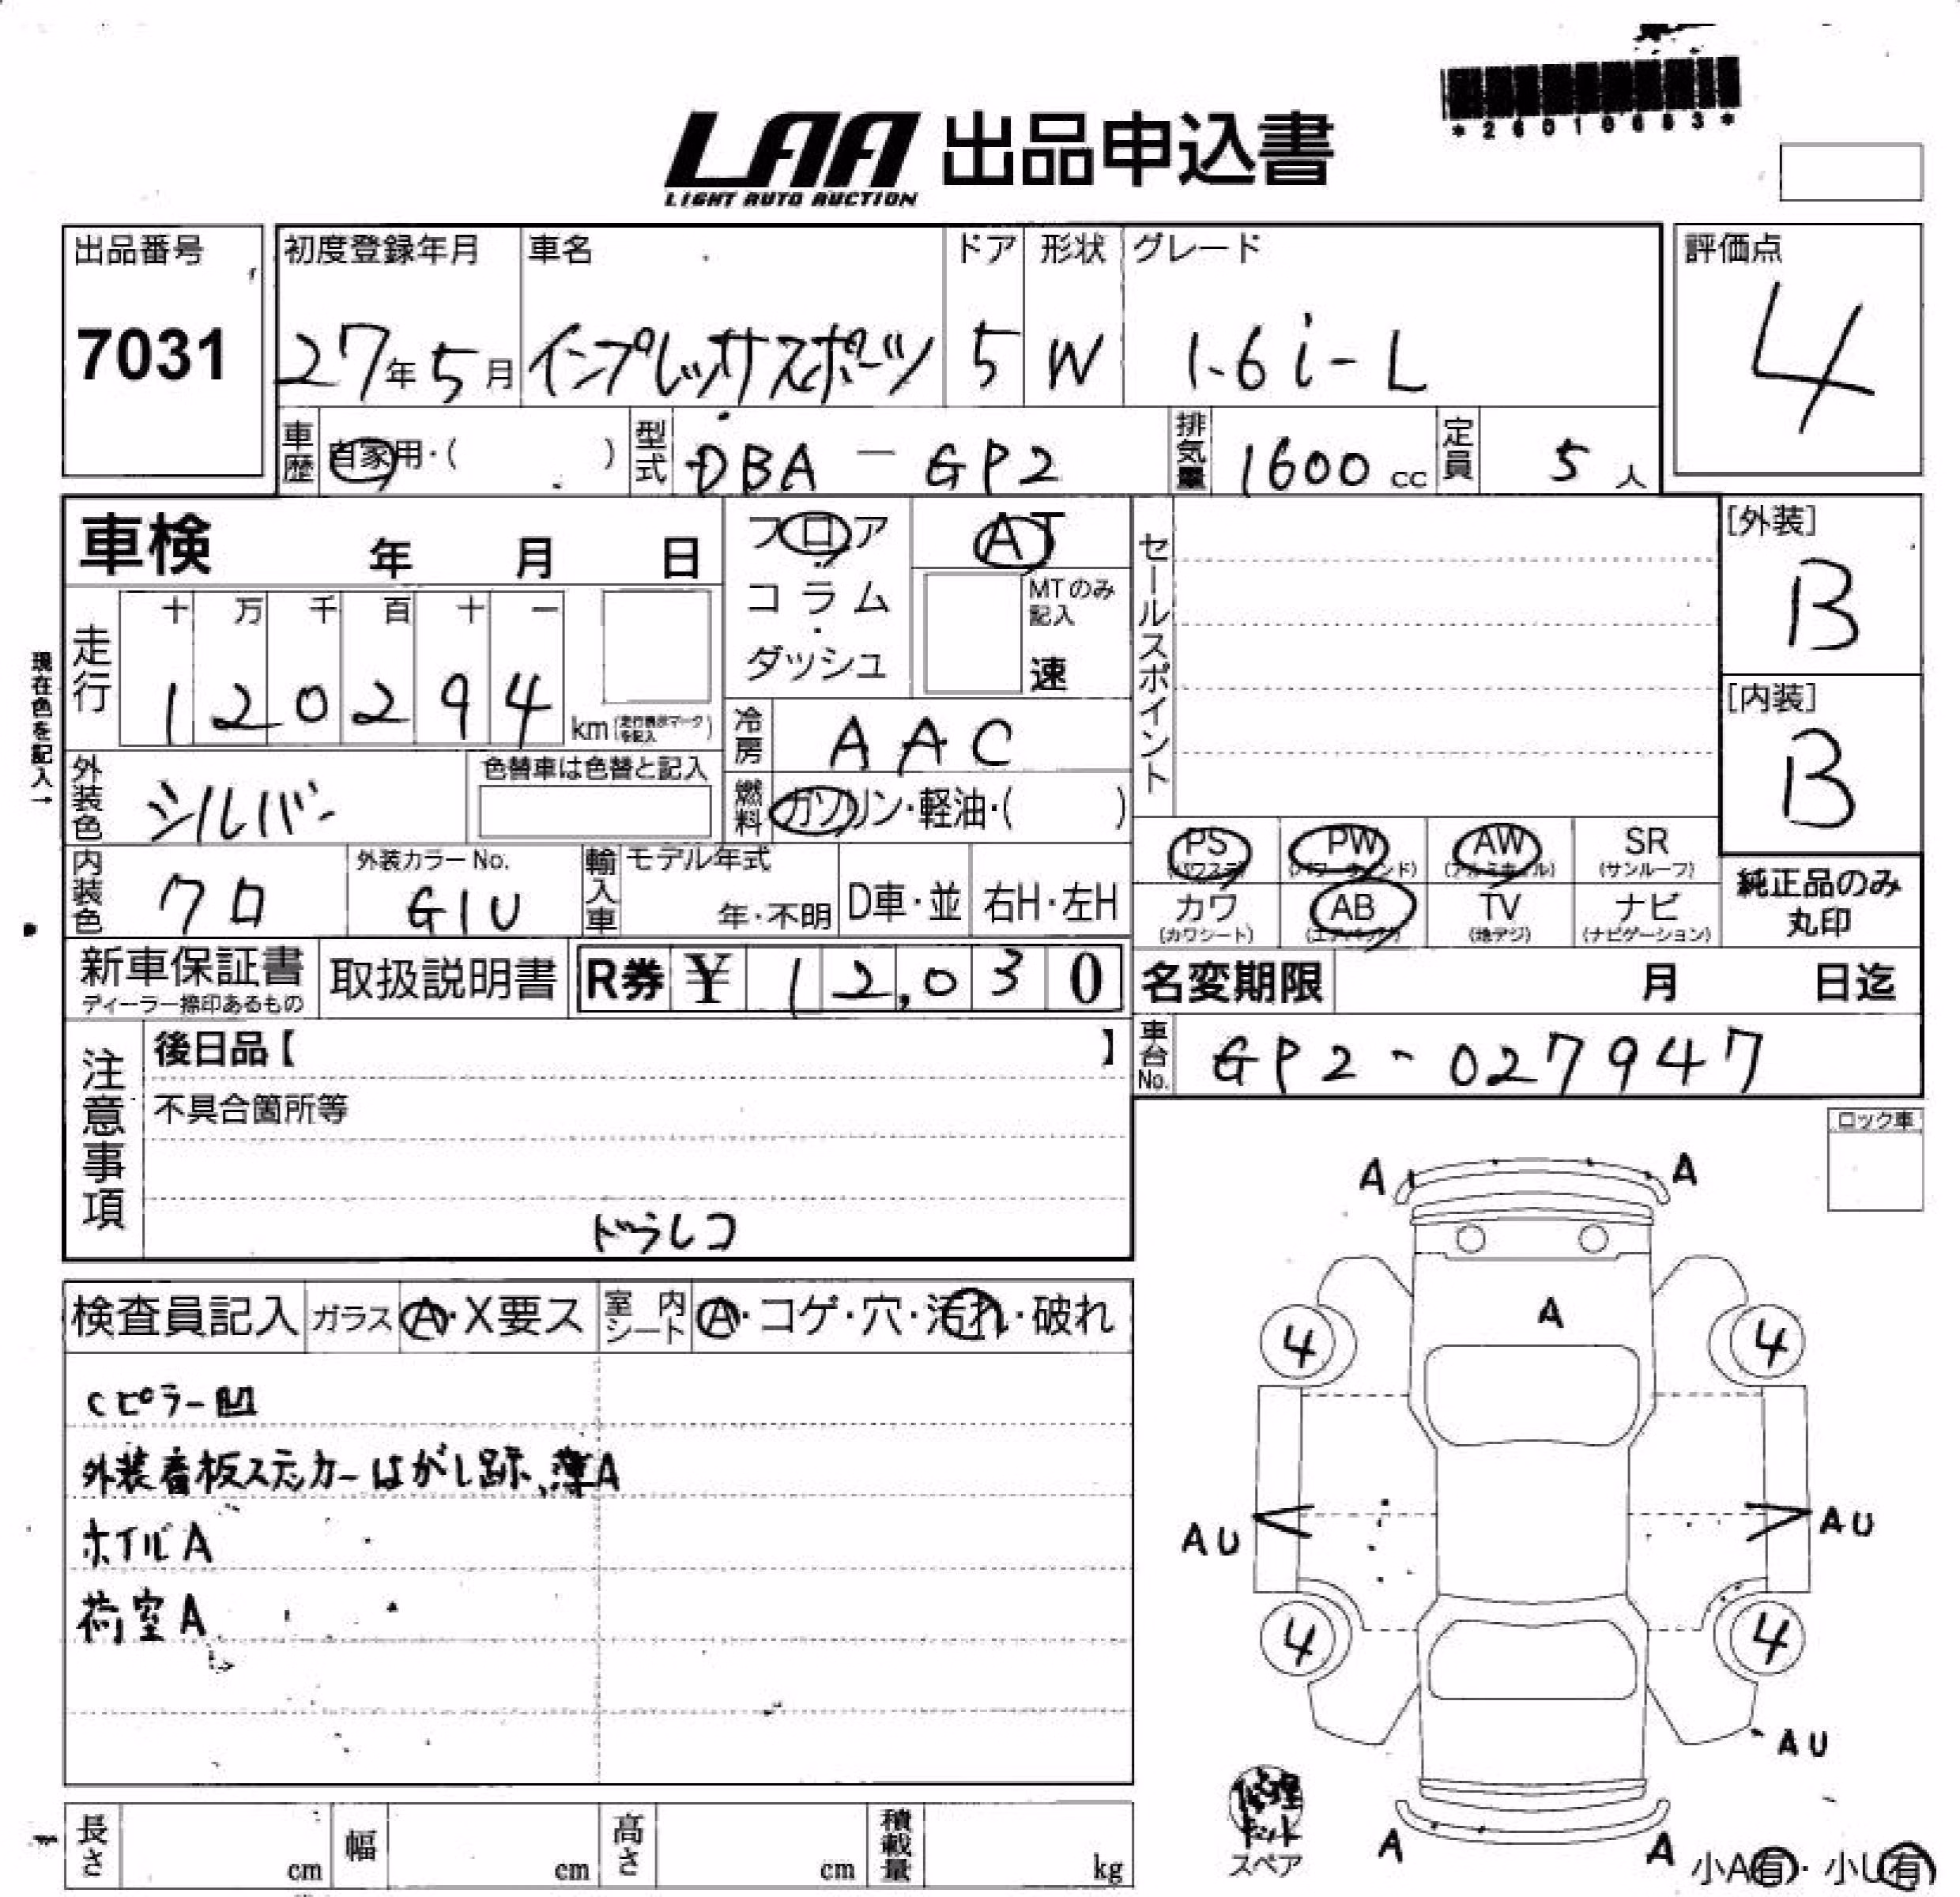 *26010683*
LAA 出品申込書
LIGHT AUTO AUCTION
出品番号 7031
初度登録年月 27年5月
車名 インプレッサスポーツ
ドア 5
形状 W
グレード 1.6i-L
評価点 4
車歴 自家用・( )
型式 DBA-GP2
排気量 1600cc
定員 5人
車検 年 月 日
フロア
コラム
・
ダッシュ
AT
MTのみ記入
速
セールスポイント
[外装]
B
[内装]
B
現在色を記入→
走行 十 万 千 百 十 一
120294 km (走行表示マークを記入)
冷房 AAC
外装色 シルバー
色替車は色替と記入
燃料 ガソリン・軽油・( )
PS (パワステ) PW (パワーウィンド) AW (アルミホイル) SR (サンルーフ)
カワ (カワシート) AB (エアバッグ) TV (地デジ) ナビ (ナビゲーション)
純正品のみ
丸印
内装色 クロ
外装カラーNo. G1U
輸入車 モデル年式 年・不明
D車・並
右H・左H
新車保証書
ディーラー捺印あるもの
取扱説明書
R券 ¥12,030
名変期限 月 日迄
車台No. GP2-027947
注意事項
後日品【 】
不具合箇所等
ドラレコ
ロック車
検査員記入 ガラス A・X要ス 室内シート A・コゲ・穴・汚れ・破れ
Cピラー凹
外装看板ステッカーはがし跡、薄A
ホイルA
荷室A
A A
A
4 4
AU AU
4 4
AU
A A
修理
キット
スペア
小A有・小U有
長さ cm
幅 cm
高さ cm
積載量 kg